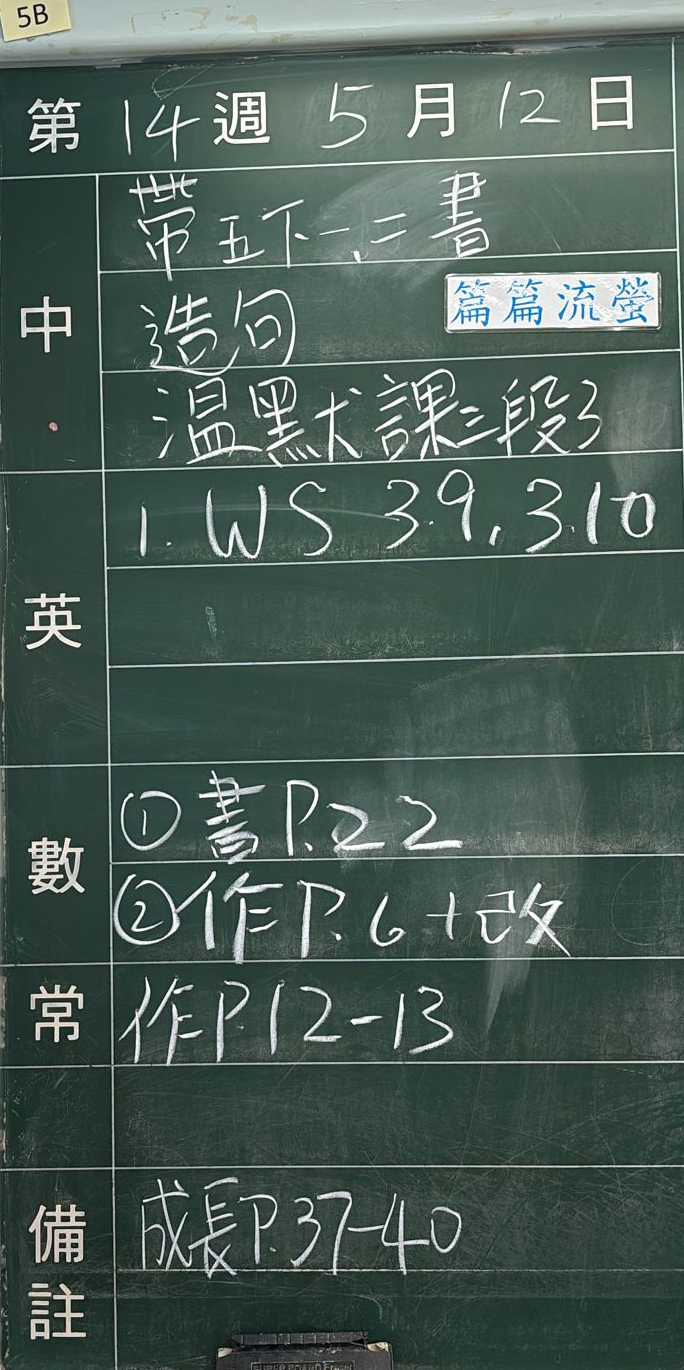 5B
第 14 週 5 月 12 日
中
帶五下一、二書
造句
篇篇流螢
溫默課三段3
英
1. WS 3.9, 3.10
數
① 書P.22
② 作P.6+改
常
作P.12-13
備註
成長P.37-40